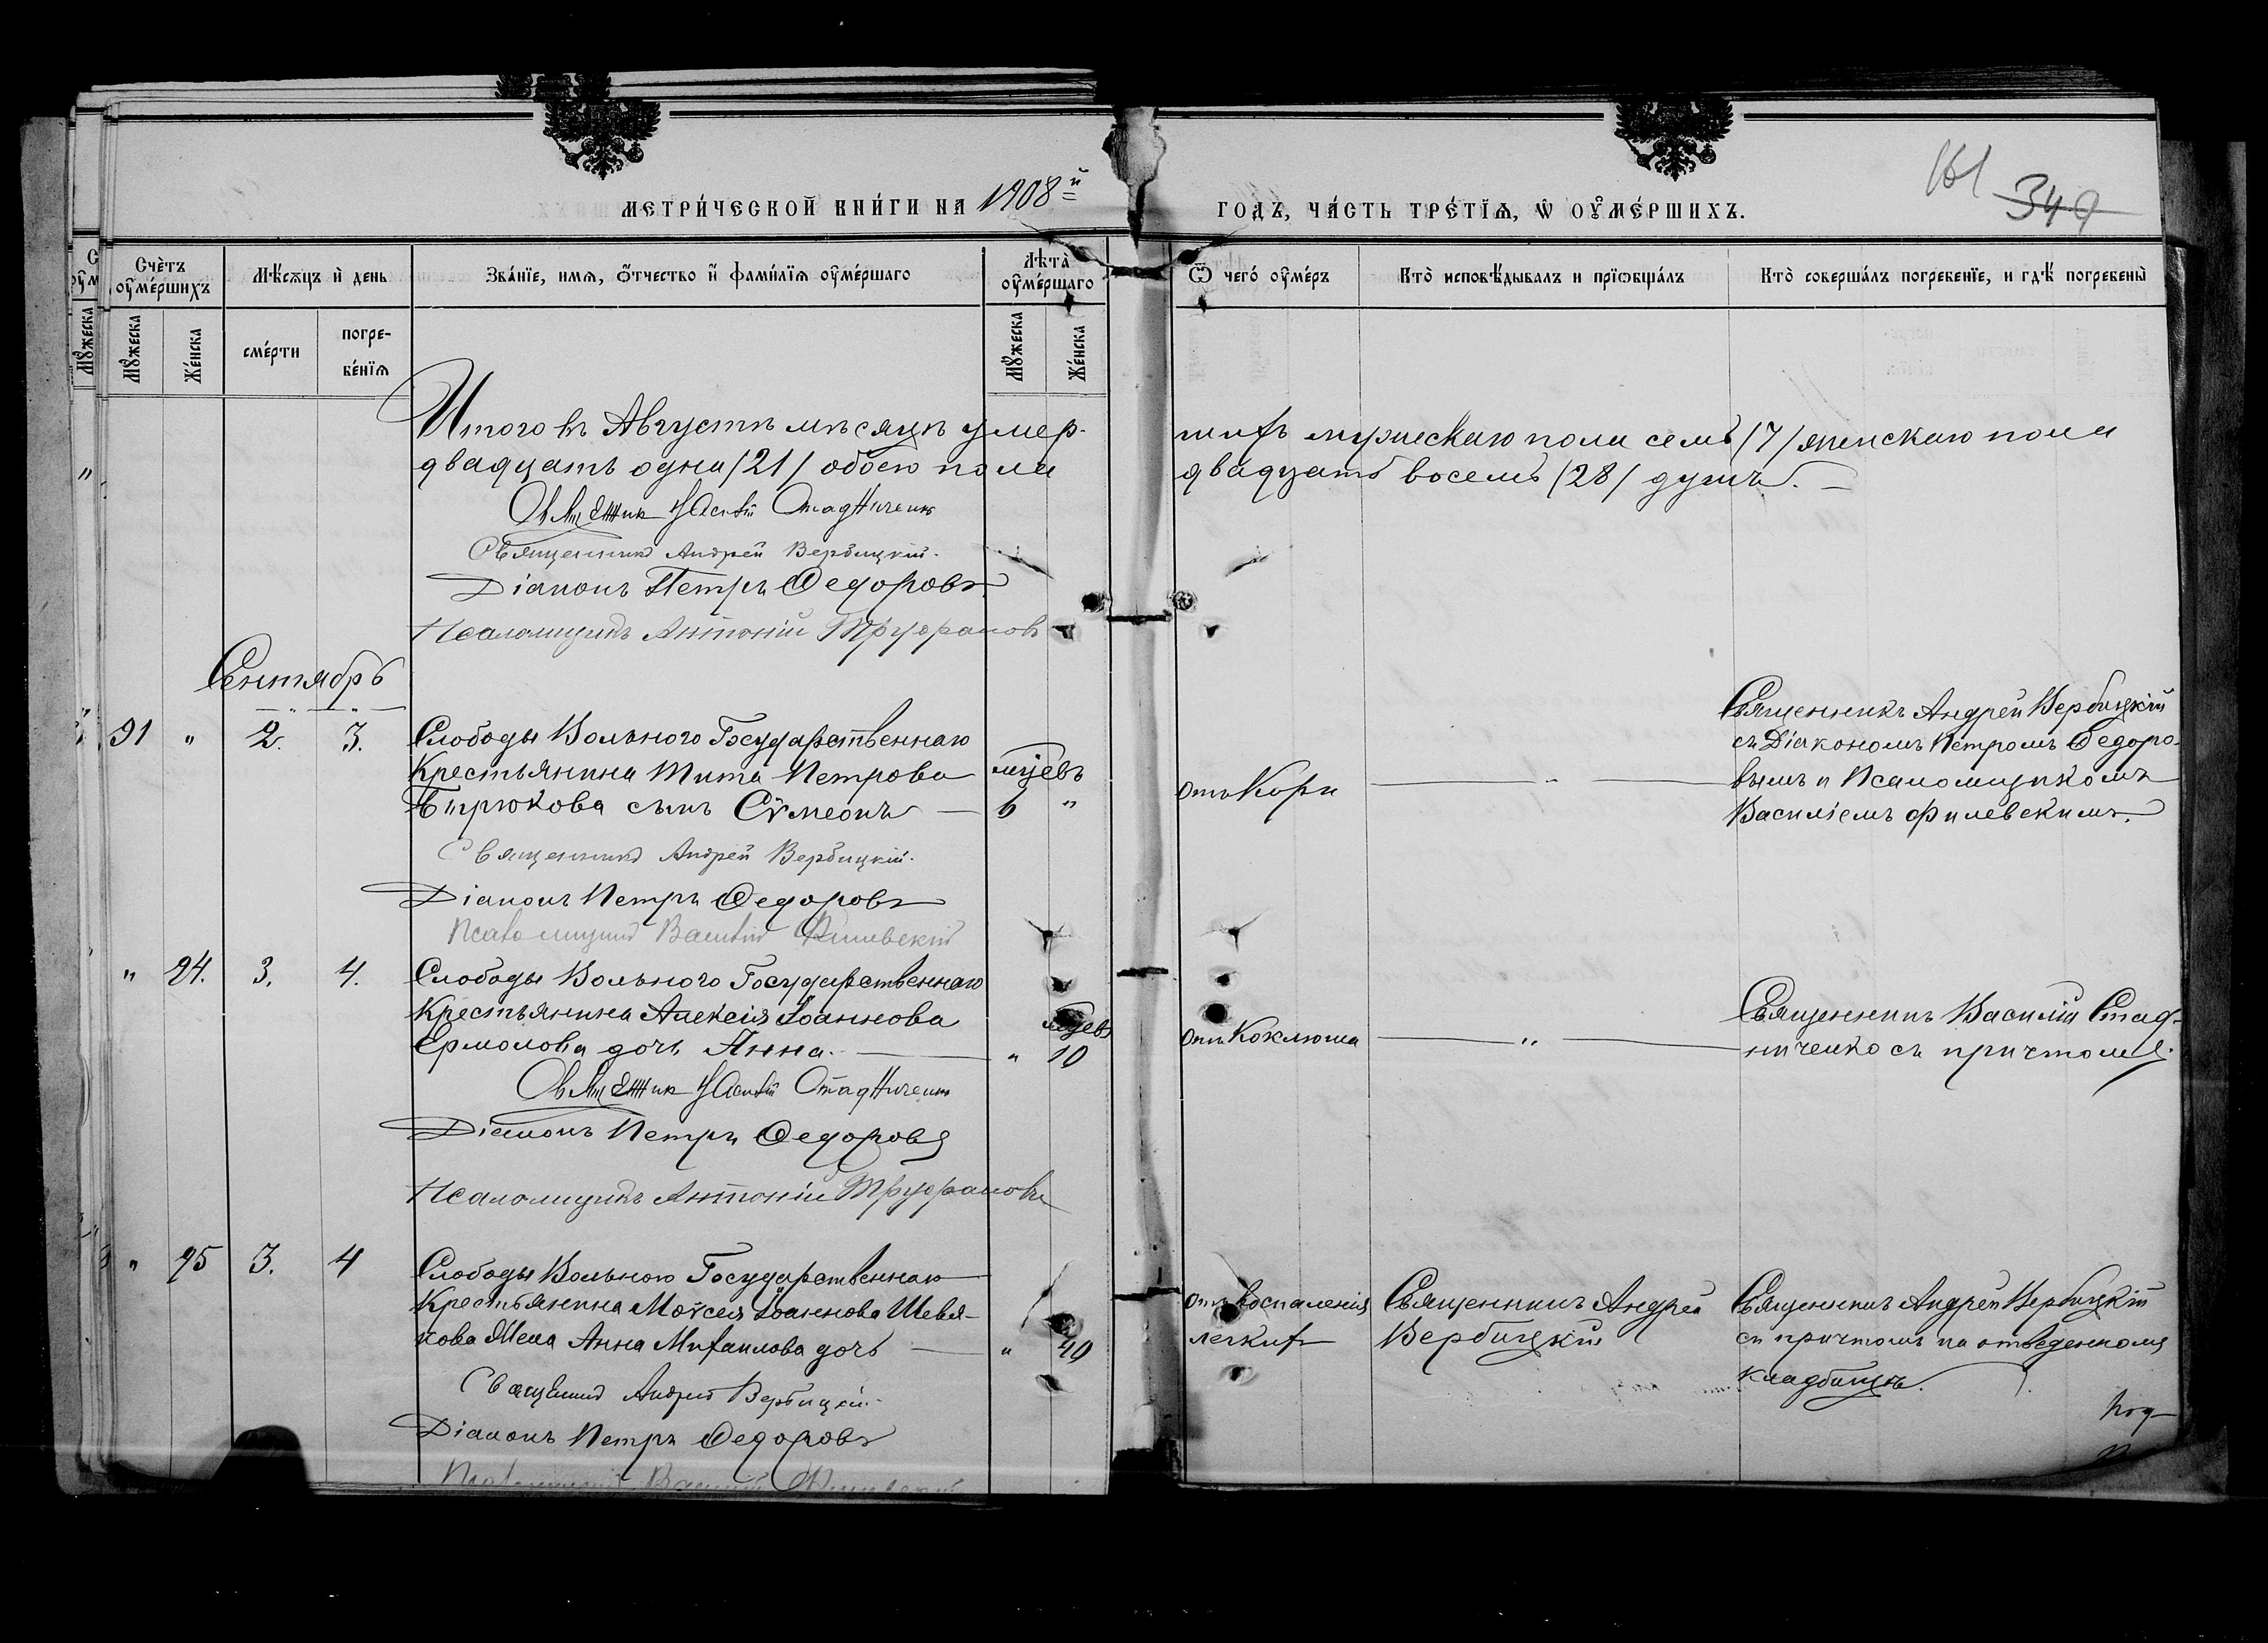 МЕТРИ́ЧЕСКОЙ КНИ́ГИ НА 1908й ГОДЪ, ЧА́СТЬ ТРЕ́ТЇѦ, Ѡ҆ ОУ҆МЕ́РШИХЪ.
161
349
Счѐтъ оу҆ме́ршихъ
Мѣ́сѧцъ и҆ де́нь
Зва́нїе, имѧ, ѻ҆́тчество и҆ фами́лїѧ оу҆ме́ршаго
Лѣ́та̀ оу҆ме́ршаго
Ѿ чегѡ́ оу҆ме́ръ
Кто̀ исповѣ́дывалъ и прїѡбща́лъ
Кто̀ соверша́лъ погребе́нїе, и гдѣ́ погребены̀
Мꙋ́жеска
Же́нска
сме́рти
погре-
бе́нїѧ
Мꙋ́жеска
Же́нска
Итого въ Августѣ мѣсяцѣ умер-
шихъ мужескаго пола семь /7/ женскаго пола
двадцать одна /21/ обоего пола
двадцать восемь /28/ душъ. —
Священник Василій Стадниченко
Священникъ Андрей Вербицкій.
Діаконъ Петръ Федоровъ
Псаломщикъ Антоній Труфановъ
Сентябрь
91 " 2. 3. Слободы Вольного Государственнаго
Крестьянина Тита Петрова мцевъ
Бирюкова сынъ Сѵмеонъ — 6 "
отъ Кори — " —
Священникъ Андрей Вербицкій
съ Діакономъ Петромъ Федоро-
вымъ и Псаломщикомъ
Василіемъ Филевскимъ.
Священникъ Андрей Вербицкій.
Діаконъ Петръ Федоровъ
Псаломщикъ Василій Филевскій
" 94. 3. 4. Слободы Вольного Государственнаго
Крестьянина Алексія Іоаннова мцевъ
Ермолова дочь Анна. — " 10
отъ Коклюша — " —
Священникъ Василій Стад-
ниченко съ причтомъ.
Священник Василій Стадниченко
Діаконъ Петръ Федоровъ
Псаломщикъ Антоній Труфановъ
" 95 3. 4 Слободы Вольного Государственнаго
Крестьянина Моѵсея Іоаннова Шевя-
кова жена Анна Михаилова дочь — " 49
отъ воспаленія
легкихъ
Священникъ Андрей
Вербицкій
Священникъ Андрей Вербицкій
съ причтомъ на отведенномъ
кладбищѣ.
Священникъ Андрей Вербицкій.
Діаконъ Петръ Федоровъ
Псаломщикъ Василій Филевскій